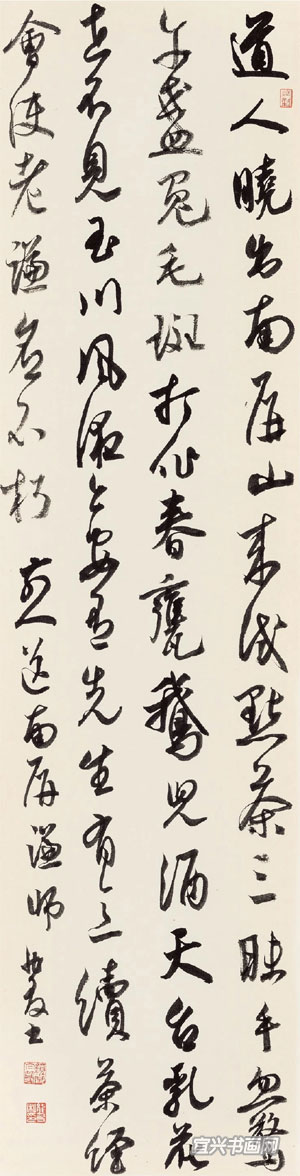 道人曉出南屏山來試點茶三昧手忽驚
午盞兔毛斑打作春甕鵝兒酒天台乳花
世不見玉川風液今安有先生有意續茶經
會使老謙名不朽 送南屏謙師 書
宜兴书画网